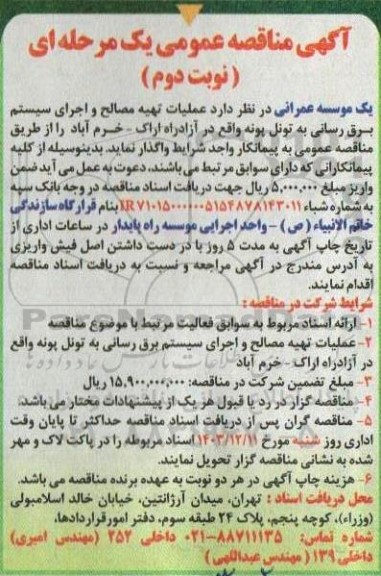 آگهی مناقصه عمومی یک مرحله ای
( نوبت دوم )
یک موسسه عمرانی در نظر دارد عملیات تهیه مصالح و اجرای سیستم
برق رسانی به تونل پونه واقع در آزادراه اراک - خرم آباد را از طریق
مناقصه عمومی به پیمانکار واجد شرایط واگذار نماید. بدینوسیله از کلیه
پیمانکارانی که دارای سوابق مرتبط می باشند، دعوت به عمل می آید ضمن
واریز مبلغ ۵,۰۰۰,۰۰۰ ریال جهت دریافت اسناد مناقصه در وجه بانک سپه
به شماره شباء IR۷۱۰۱۵۰۰۰۰۰۰۵۱۵۴۸۷۸۱۴۳۰۱۱ بنام قرارگاه سازندگی
خاتم الانبیاء (ص) - واحد اجرایی موسسه راه پایدار در ساعات اداری از
تاریخ چاپ آگهی به مدت ۵ روز با در دست داشتن اصل فیش واریزی
به آدرس مندرج در آگهی مراجعه و نسبت به دریافت اسناد مناقصه
اقدام نمایند.
شرایط شرکت در مناقصه :
۱- ارائه اسناد مربوط به سوابق فعالیت مرتبط با موضوع مناقصه
۲- عملیات تهیه مصالح و اجرای سیستم برق رسانی به تونل پونه واقع
در آزادراه اراک - خرم آباد
۳- مبلغ تضمین شرکت در مناقصه: ۱۵,۹۰۰,۰۰۰,۰۰۰ ریال
۴- مناقصه گزار در رد یا قبول هر یک از پیشنهادات مختار می باشد
۵- مناقصه گران پس از دریافت اسناد مناقصه حداکثر تا پایان وقت
اداری روز شنبه مورخ ۱۴۰۳/۱۲/۱۱ اسناد مربوطه را در پاکت لاک و مهر
شده به نشانی مناقصه گزار تحویل نمایند.
۶- هزینه چاپ آگهی در هر دو نوبت به عهده برنده مناقصه می باشد.
محل دریافت اسناد : تهران، میدان آرژانتین، خیابان خالد اسلامبولی
(وزراء)، کوچه پنجم، پلاک ۲۴ طبقه سوم، دفتر امور قراردادها.
شماره تماس: ۸۸۷۱۱۱۳۵-۰۲۱ داخلی ۲۵۲ (مهندس امیری)
داخلی ۱۳۹ ( مهندس عبداللهی )